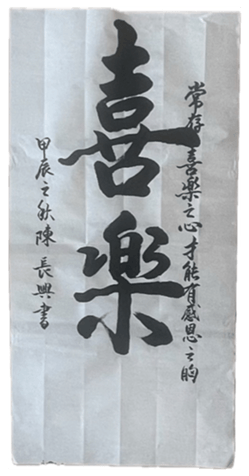 常存喜樂之心才能有感恩之胸
喜樂
甲辰之秋陳長興書